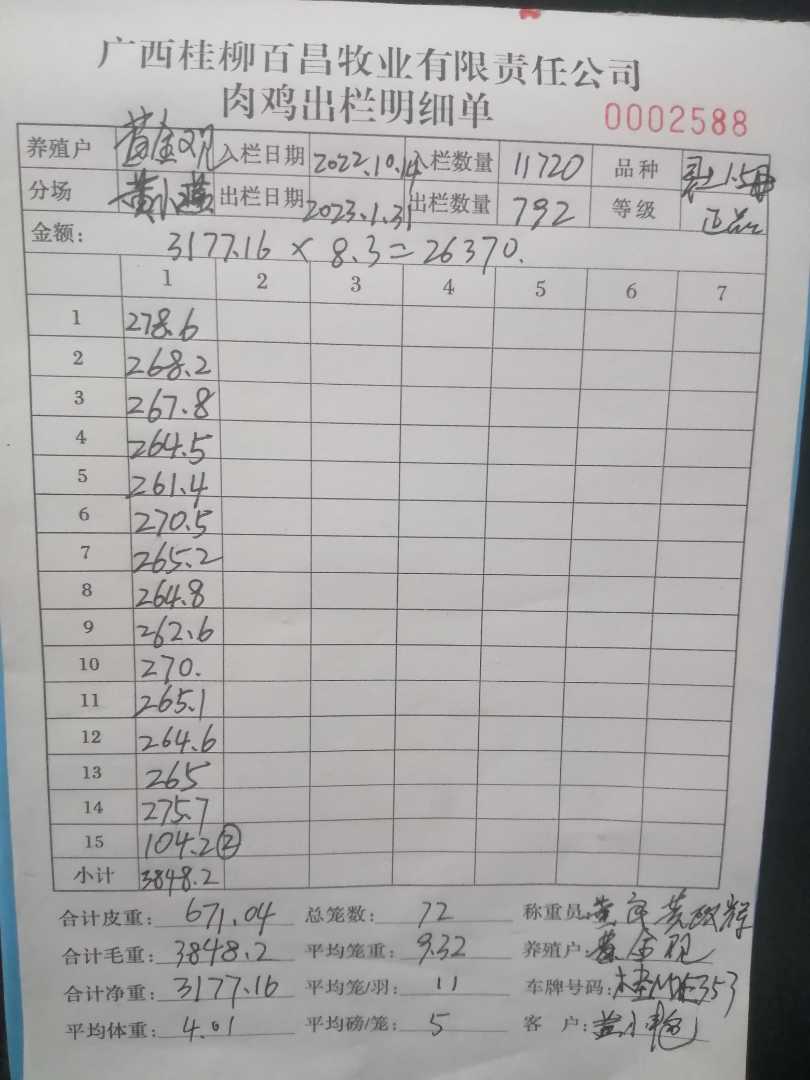 广西桂柳百昌牧业有限责任公司
肉鸡出栏明细单 0002588
养殖户 黄金观 入栏日期 2022.10.14 入栏数量 11720 品种
分场 黄小燕 出栏日期 2023.1.31 出栏数量 792 等级 正品
金额: 3177.16 × 8.3 = 26370.
1 2 3 4 5 6 7
1 278.6
2 268.2
3 267.8
4 264.5
5 261.4
6 270.5
7 265.2
8 264.8
9 262.6
10 270.
11 265.1
12 264.6
13 265
14 275.7
15 104.2 ②
小计 3848.2
合计皮重: 671.04 总笼数: 72 称重员:
合计毛重: 3848.2 平均笼重: 9.32 养殖户: 黄金观
合计净重: 3177.16 平均笼/羽: 11 车牌号码:
平均体重: 4.01 平均磅/笼: 5 客 户: